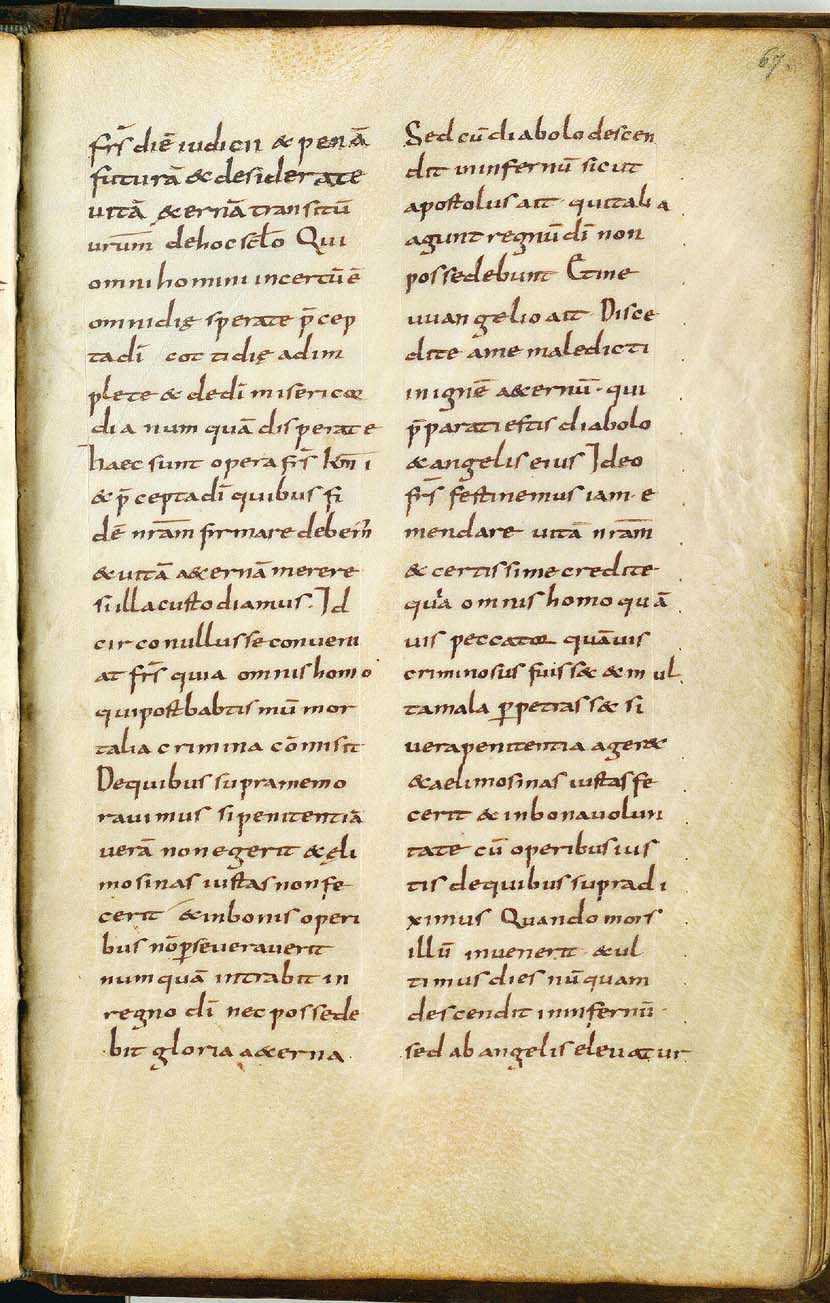 67.
frs̄ diē iudicii & penā
futurā & desiderate
uitā &ernā transitū
urum̄ de hoc sc̄lo Qui
omni homini incertū ē
omni die sperate p̄cep
ta dī cottidie adim
plete & de dī misericor
dia numquā disperate
haec sunt opera frs̄
& p̄cepta dī quibus fi
dē nrām firmare debem̄
& uitā a&ernā merere
si illa custodiamus. Id
circo nullus se conueni
at frs̄ quia omnis homo
qui post babtismū mor
talia crimina cōmisit
De quibus supra memo
rauimus si penitentiā
uerā non egerit & ęli
mosinas iustas non fe
cerit & in bonis operi
bus nō perseuerauerit
numquā intrabit in
regno dī nec possede
bit gloria a&erna
Sed cū diabolo descen
dit in infernū sicut
apostolus ait qui talia
agunt regnū dī non
possedebunt Et in e
uuangelio ait Disce
dite a me maledicti
in ignē a&ernū qui
p̄paratiestis diabolo
& angelis eius Ideo
frs̄ festinemus iam e
mendare uitā nrām
& certissime credite
quia omnis homo quā
uis peccator quāuis
criminosus fuiss& & mul
ta mala perpetrass& si
uera penitentia ager&
& aelimosinas iustas fe
cerit & in bona uolun
tate cū operibus ius
tis de quibus supra di
ximus Quando mors
illū inuenerit & ul
timus dies nūquam
descendit in infernū
sed ab angelis eleuatur